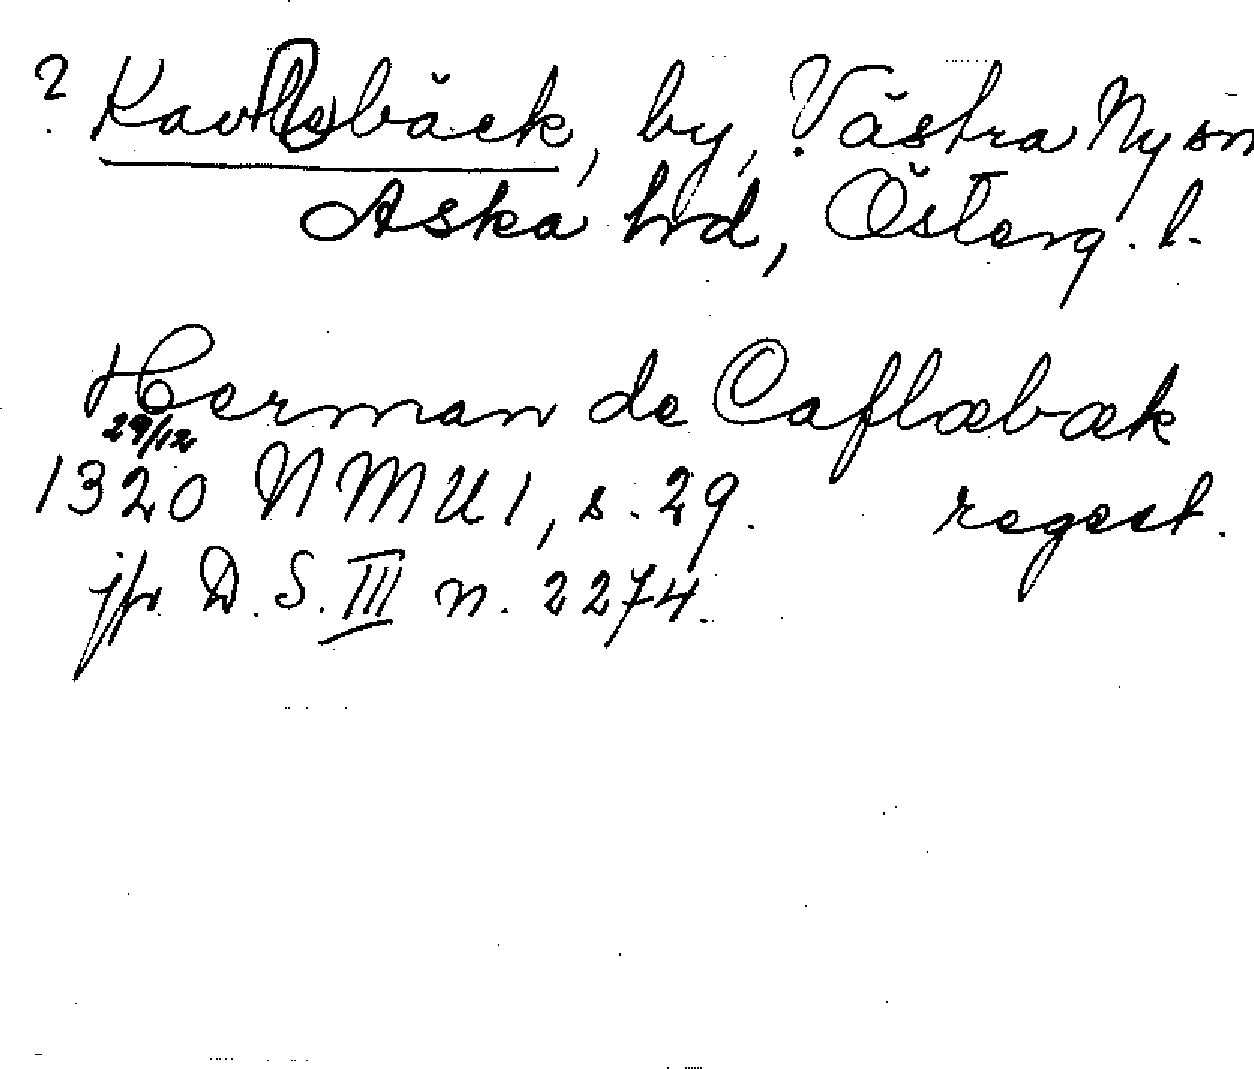 ? Kavlebäck, by, ? Västra Ny sn
Aska hrd, Österg. l.
Herman de Caflæbæk
29/12
1320 NMU 1, s. 29. regest.
jfr D. S. III n. 2274.